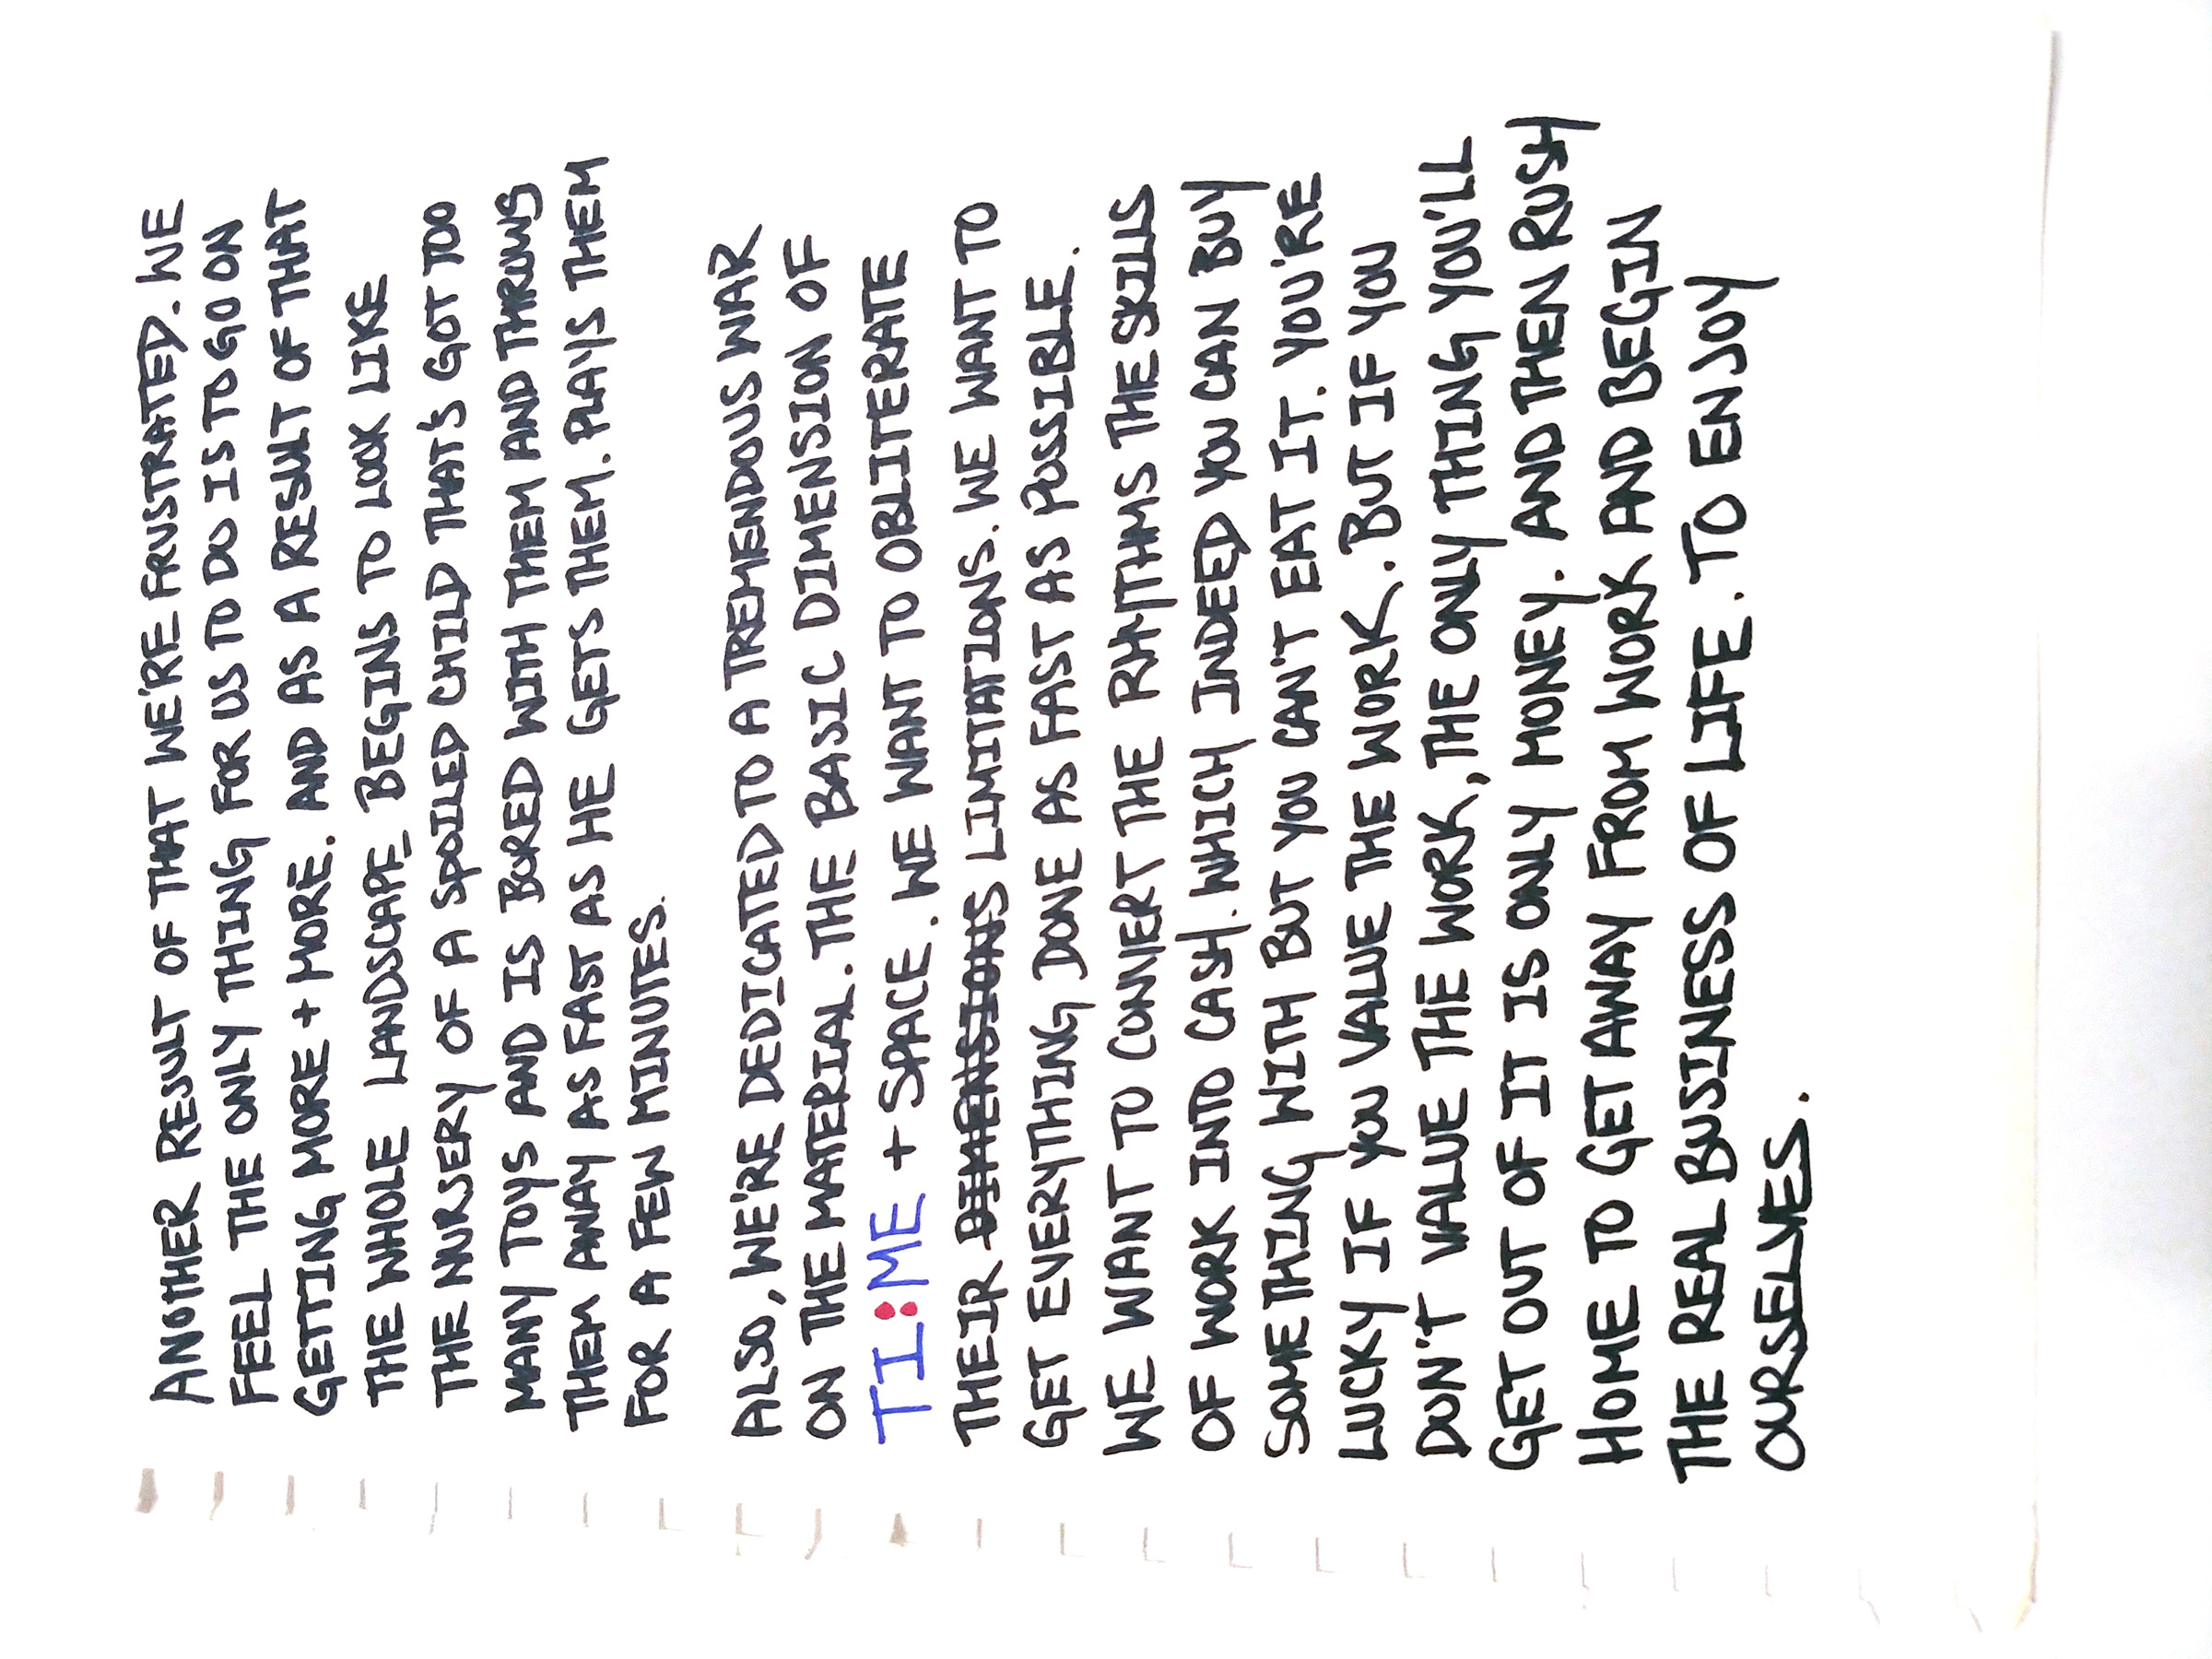 ANOTHER RESULT OF THAT WE'RE FRUSTRATED. WE
FEEL THE ONLY THING FOR US TO DO IS TO GO ON
GETTING MORE + MORE. AND AS A RESULT OF THAT
THE WHOLE LANDSCAPE BEGINS TO LOOK LIKE
THE NURSERY OF A SPOILED CHILD THAT'S GOT TOO
MANY TOYS AND IS BORED WITH THEM AND THROWS
THEM AWAY AS FAST AS HE GETS THEM. PLAYS THEM
FOR A FEW MINUTES.
ALSO, WE'RE DEDICATED TO A TREMENDOUS WAR
ON THE MATERIAL. THE BASIC DIMENSION OF
TI:ME + SPACE. WE WANT TO OBLITERATE
THEIR DIMENSIONS LIMITATIONS. WE WANT TO
GET EVERYTHING DONE AS FAST AS POSSIBLE.
WE WANT TO CONVERT THE RHYTHMS THE SKILLS
OF WORK INTO CASH. WHICH INDEED YOU CAN BUY
SOMETHING WITH BUT YOU CAN'T EAT IT. YOU'RE
LUCKY IF YOU VALUE THE WORK. BUT IF YOU
DON'T VALUE THE WORK, THE ONLY THING YOU'LL
GET OUT OF IT IS ONLY MONEY. AND THEN RUSH
HOME TO GET AWAY FROM WORK AND BEGIN
THE REAL BUSINESS OF LIFE. TO ENJOY
OURSELVES.